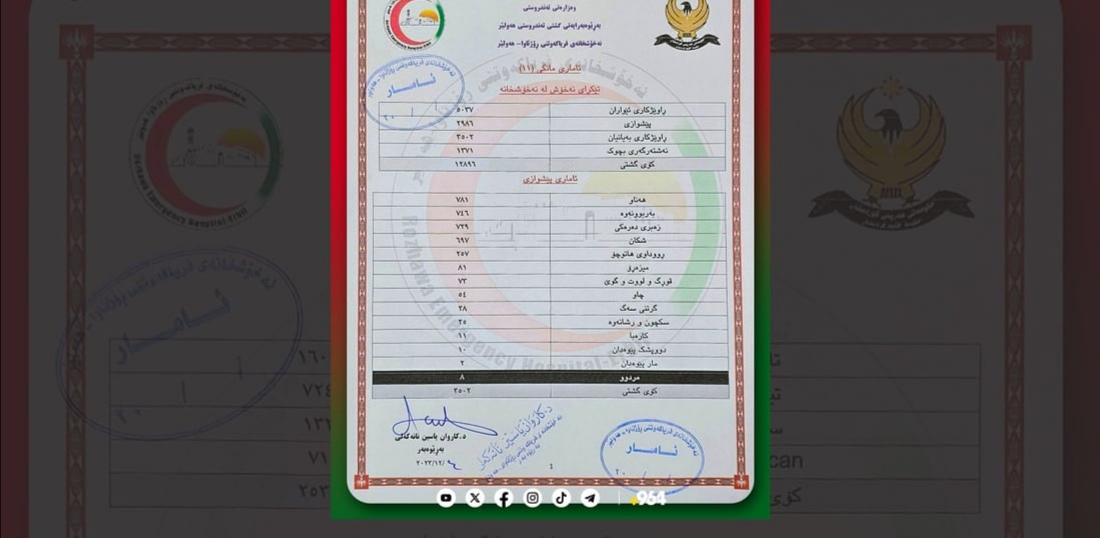 وەزارەتی تەندروستی
بەڕێوەبەرایەتی گشتی تەندروستی هەولێر
نەخۆشخانەی فریاکەوتنی ڕۆژئاوا- هەولێر
ئاماری مانگی (١١)
تێکڕای نەخۆش لە نەخۆشخانە
ڕاوێژکاری ئێواران ٥٠٣٧
پێشوازی ٢٩٨٦
ڕاوێژکاری بەیانیان ٣٥٠٢
نەشتەرگەری بچوک ١٣٧١
کۆی گشتی ١٢٨٩٦
ئاماری پێشوازی
هەناو ٧٨١
بەربوونەوە ٧٤٦
زەبری دەرەکی ٧٢٩
شکان ٦٩٧
ڕووداوی هاتوچۆ ٢٥٧
میزەڕۆ ٨١
قوڕگ و لووت و گوێ ٧٣
چاو ٥٤
گرتنی سەگ ٣٨
سکچون و ڕشانەوە ٢٥
کارەبا ١١
دووپشک پێوەدان ١٠
مار پێوەدان ٢
مردوو ٨
کۆی گشتی ٣٥٠٢
د.کاروان یاسین نانەکەلی
بەڕێوەبەر
ئامار
ئامار
Rozhawa Emergency Hospital-Erbil
964